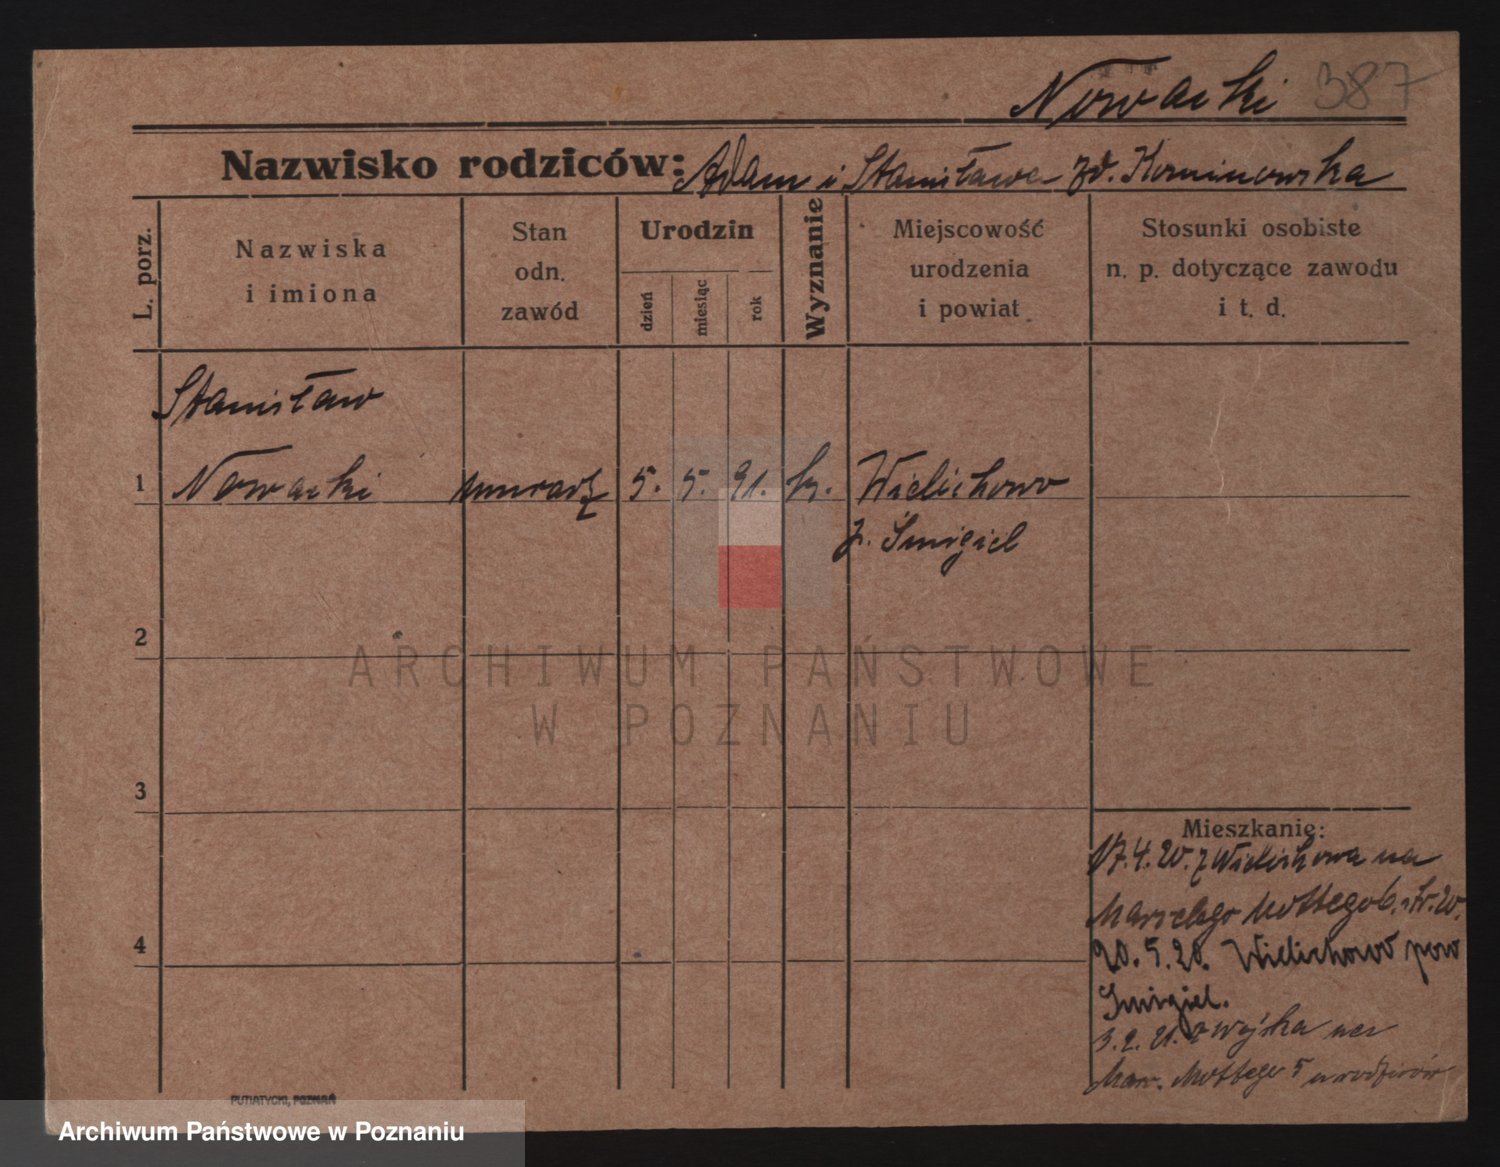 Nowacki 387
Nazwisko rodziców: Adam i Stanisława zd. Kominowska
L. porz.
Nazwiska
i imiona
Stan
odn.
zawód
Urodzin
dzień
miesiąc
rok
Wyznanie
Miejscowość
urodzenia
i powiat
Stosunki osobiste
n. p. dotyczące zawodu
i t. d.
Stanisław
1 Nowacki 5. 5. 91. Wielichowo
Śmigiel
2
ARCHIWUM PAŃSTWOWE
W POZNANIU
3
Mieszkanie:
17.4.20. z Wielichowa na
Marcelego Mottego
20.5.20. Wielichowo pow
Śmigiel.
3.2.21. z wojska na
Marc. Mottego 5 u rodziców
4
PUTIATYCKI, POZNAŃ
Archiwum Państwowe w Poznaniu